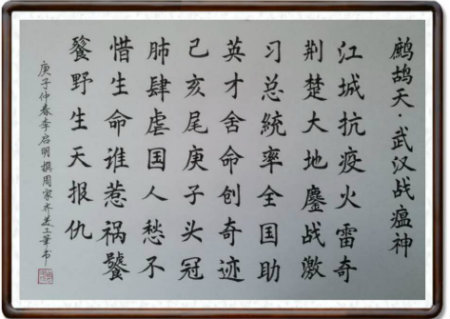 鹧鸪天·武汉战瘟神
江城抗疫火雷奇
荆楚大地鏖战激
习总統率全国助
英才舍命创奇迹
己亥尾庚子头冠
肺肆虐国人愁不
惜生命谁惹祸饕
餮野生天报仇
庚子仲春李启明撰周家齐书